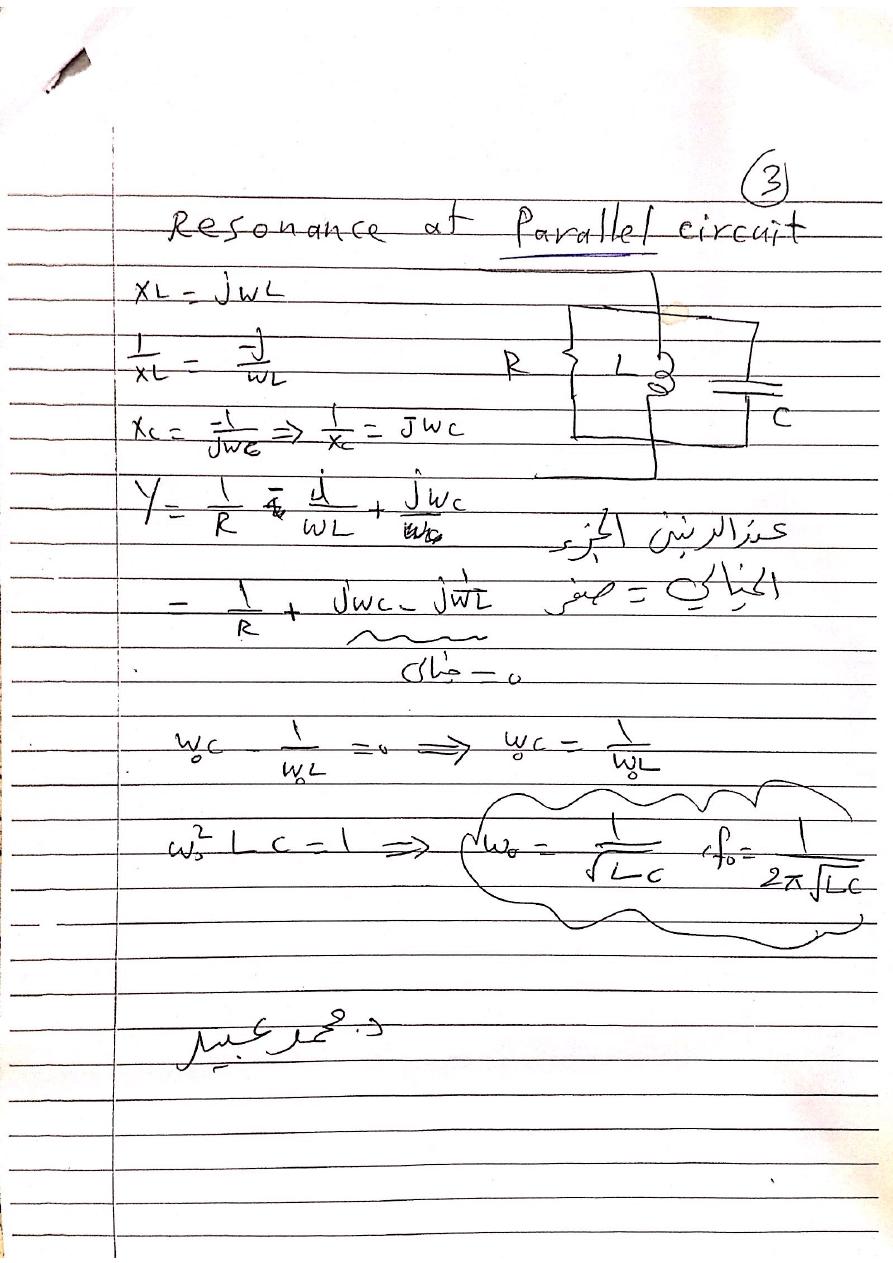 3
Resonance at Parallel circuit
XL = jwL
1/XL = -J/wL
R L C
Xc = -1/jwc => 1/Xc = Jwc
Y = 1/R - j/wL + jwc
عند الرنين الجزء
= 1/R + jwc - j 1/wL
الخيالي = صفر
خيالى = ٠
w₀c - 1/w₀L = ٠ => w₀c = 1/w₀L
w₀² L C = 1 => w₀ = 1/√LC ، f₀ = 1/2π√LC
د. محمد عبيد